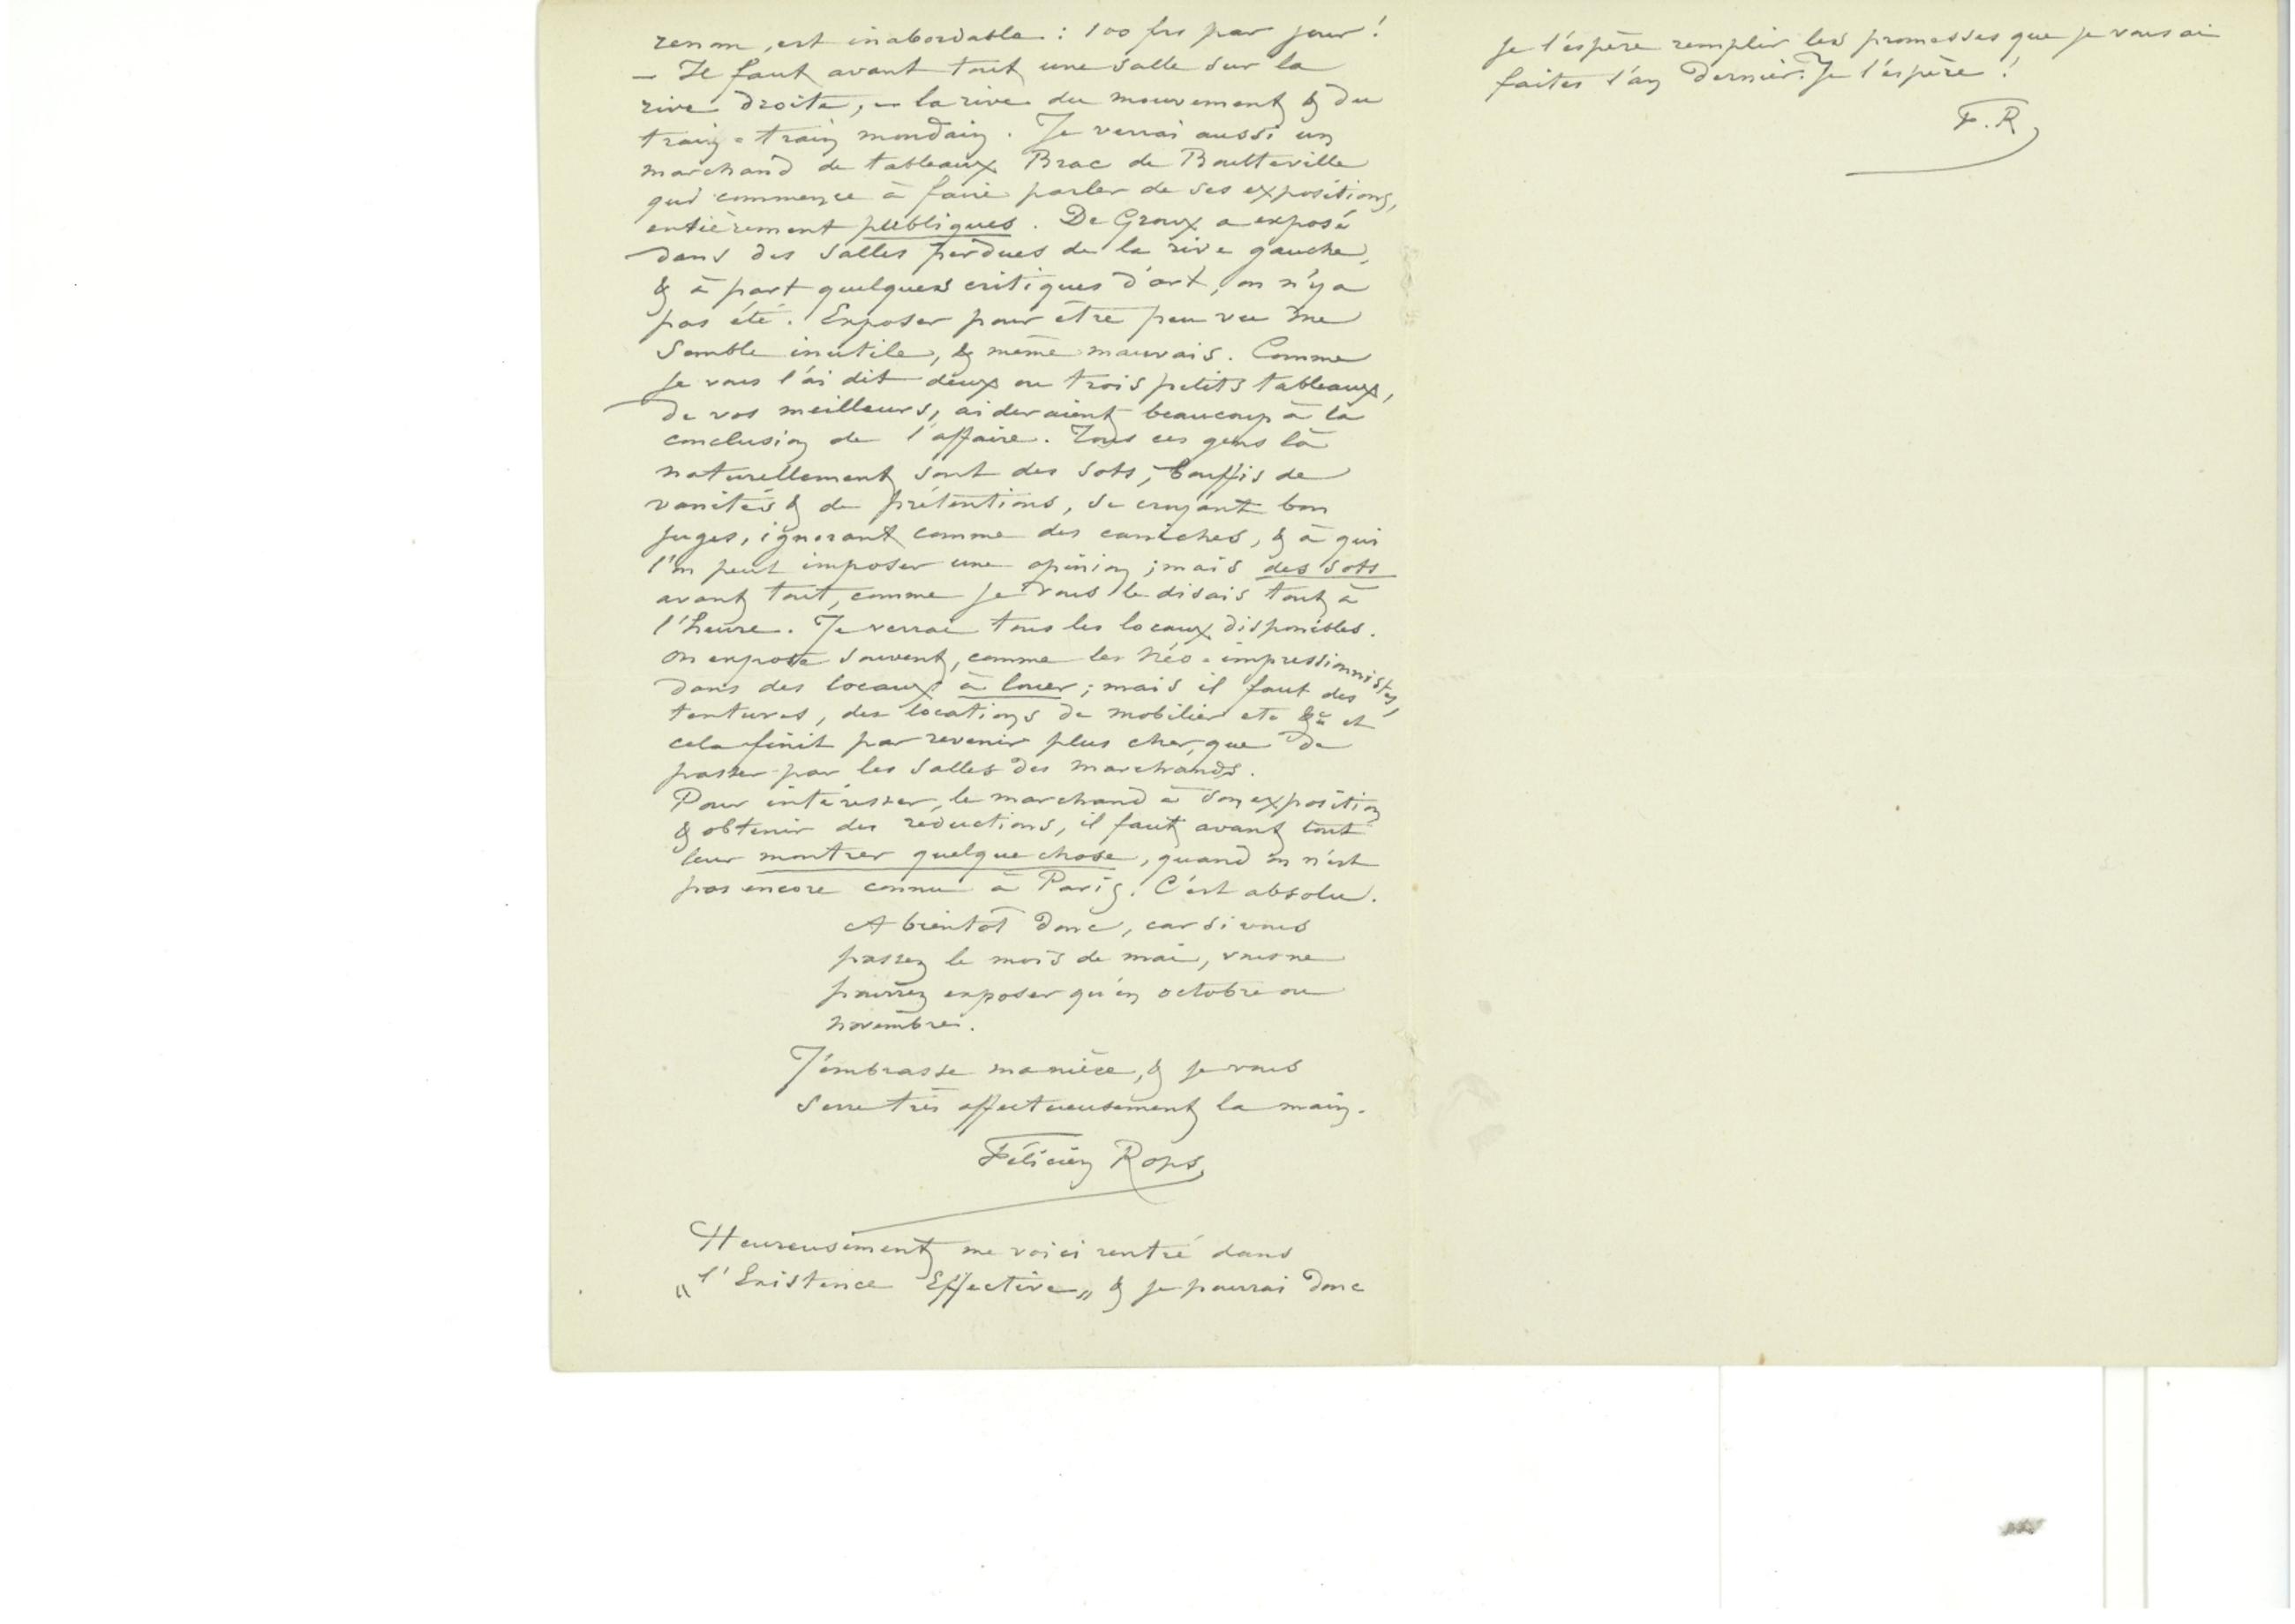 renom, est inabordable : 100 frs par jour !
– Il faut avant tout une salle sur la
rive droite, – la rive du mouvement & du
train-train mondain. Je verrai aussi un
marchand de tableaux Brac de Boutteville
qui commence à faire parler de ses expositions,
entièrement publiques. De Groux a exposé
dans des salles perdues de la rive gauche,
& à part quelques critiques d'art, on n'y a
pas été. Exposer pour être peu vu me
semble inutile, & même mauvais. Comme
je vous l'ai dit deux ou trois petits tableaux,
de vos meilleurs, aideraient beaucoup à la
conclusion de l'affaire. Tous ces gens là
naturellement sont des sots, bouffis de
vanités & de prétentions, se croyant bon
juges, ignorant comme des caniches, & à qui
l'on peut imposer une opinion ; mais des sots
avant tout, comme je vous le disais tout à
l'heure. Je verrai tous les locaux disponibles.
On expose souvent, comme les Néo-impressionnistes,
dans des locaux à louer ; mais il faut des
tentures, des locations de mobilier etc & et
cela finit par revenir plus cher, que de
passer par les salles des marchands.
Pour intéresser, le marchand à son exposition
& obtenir des réductions, il faut avant tout
leur montrer quelque chose, quand on n'est
pas encore connu à Paris. C'est absolu.
A bientôt donc, car si vous
passez le mois de mai, vous ne
pourrez exposer qu'en octobre ou
novembre.
J'embrasse ma nièce, & je vous
serre très affectueusement la main.
Félicien Rops
Heureusement me voici rentré dans
„l'Existence Effective„ & je pourrai donc
je l'espère remplir les promesses que je vous ai
faites l'an dernier. Je l'espère !
F. R